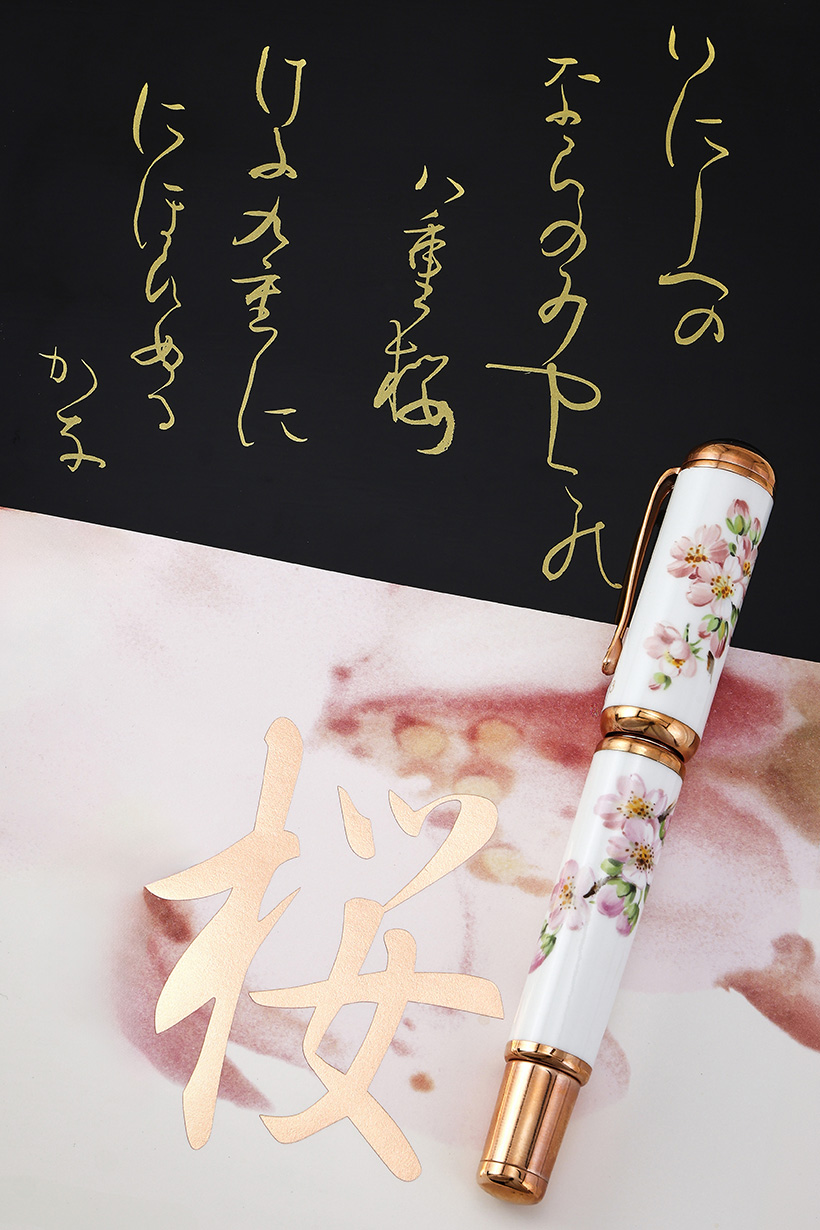 いにしへの
ならのみやこの
八重桜
けふ九重に
にほひぬる
かな
桜